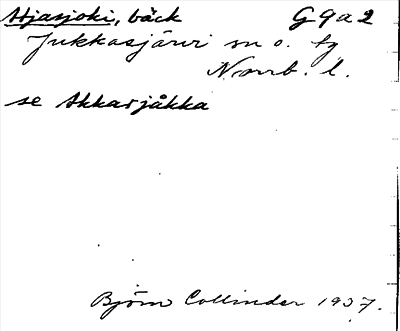 Atjasjoki, bäck G9a2
Jukkasjärvi sn o. tg
Norrb. l.
se Akkarjåkka
Björn Collinder 1937.